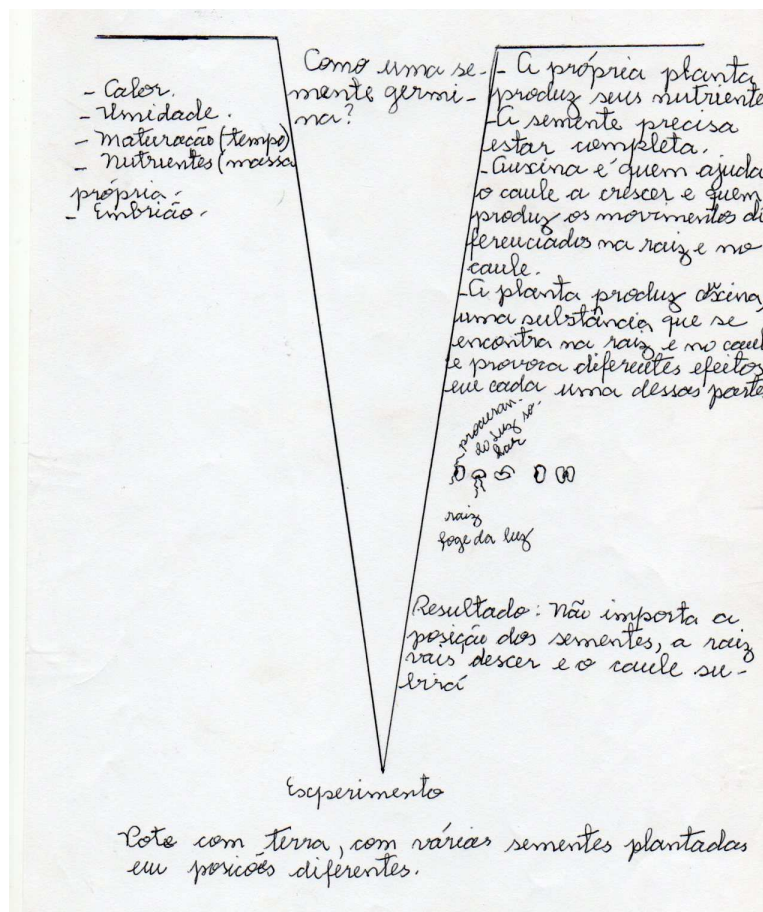 Como uma se-
mente germi-
na?
- Calor.
- Umidade.
- Maturação (tempo)
- Nutrientes (massa
própria.
- Embrião.
- A própria planta
produz seus nutriente
- A semente precisa
estar completa.
- Auxina é quem ajuda
o caule a crescer e quem
produz os movimentos di
ferenciados na raiz e no
caule.
- A planta produz
uma substância que se
encontra na raiz e no caul
e provora diferentes efeitos
em cada uma dessas parte
procuran-
do luz so-
lar
raiz
foge da luz
Resultado: Não importa a
posição dos sementes, a raiz
vais descer e o caule su-
birá
Experimento
Pote com terra, com várias sementes plantadas
em posicões diferentes.